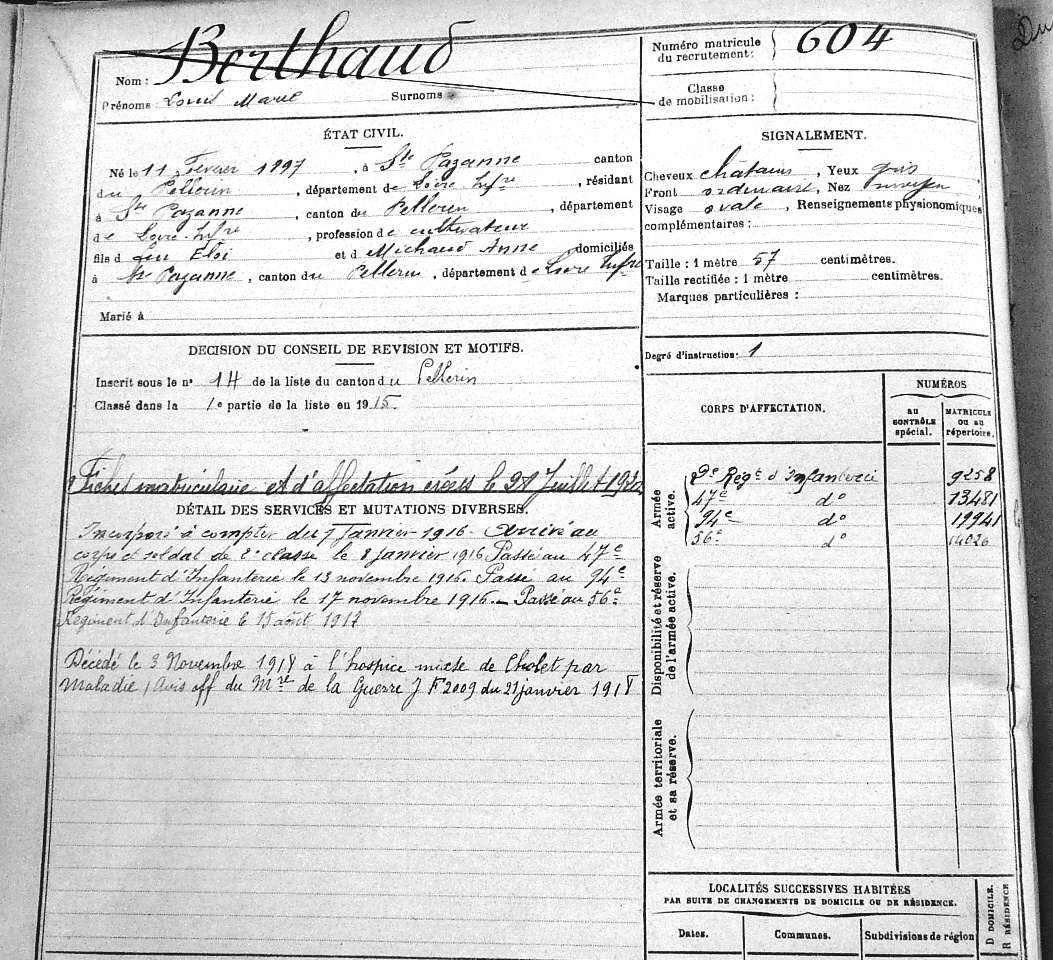 Nom : Berthaud
Prénoms : Louis Marie Surnoms
Numéro matricule du recrutement : 604
Classe de mobilisation :
ÉTAT CIVIL.
Né le 11 Février 1897, à Ste Pazanne canton
du Pellerin, département de Loire Infre, résidant
à Ste Pazanne, canton du Pellerin, département
de Loire-Infre, profession de cultivateur
fils d feu Eloi et d Michaud Anne domiciliés
à Ste Pazanne, canton du Pellerin, département de Loire Infre
Marié à
SIGNALEMENT.
Cheveux châtains, Yeux gris
Front ordinaire, Nez moyen
Visage ovale, Renseignements physionomiques
complémentaires :
Taille : 1 mètre 57 centimètres.
Taille rectifiée : 1 mètre centimètres.
Marques particulières :
Degré d'instruction: 1
DECISION DU CONSEIL DE REVISION ET MOTIFS.
Inscrit sous le n° 14 de la liste du canton du Pellerin
Classé dans la 1e partie de la liste en 1915.
Fiches matriculaire et d'affectation créées le Juillet
DÉTAIL DES SERVICES ET MUTATIONS DIVERSES.
Incorporé à compter du 7 Janvier 1916. Arrivé au
corps et soldat de 2e classe le 8 janvier 1916. Passé au 47e
Régiment d'Infanterie le 13 novembre 1916. Passé au 94e
Régiment d'Infanterie le 17 novembre 1916 – Passé au 56e
Régiment d'Infanterie le 15 août 1917
Décédé le 3 Novembre 1918 à l'hospice mixte de Cholet par
Maladie, Avis off du Mre de la Guerre J F 2009 du 21 janvier 1918
CORPS D'AFFECTATION.
NUMÉROS
AU CONTRÔLE spécial.
MATRICULE OU AU répertoire.
Armée active.
Régt d'Infanterie 9258
47e do 13481
94e do 19941
56e do 14026
Disponibilité et réserve de l'armée active.
Armée territoriale et sa réserve.
LOCALITÉS SUCCESSIVES HABITÉES
PAR SUITE DE CHANGEMENTS DE DOMICILE OU DE RÉSIDENCE.
Dates. Communes. Subdivisions de région
D DOMICILE.
R RÉSIDENCE